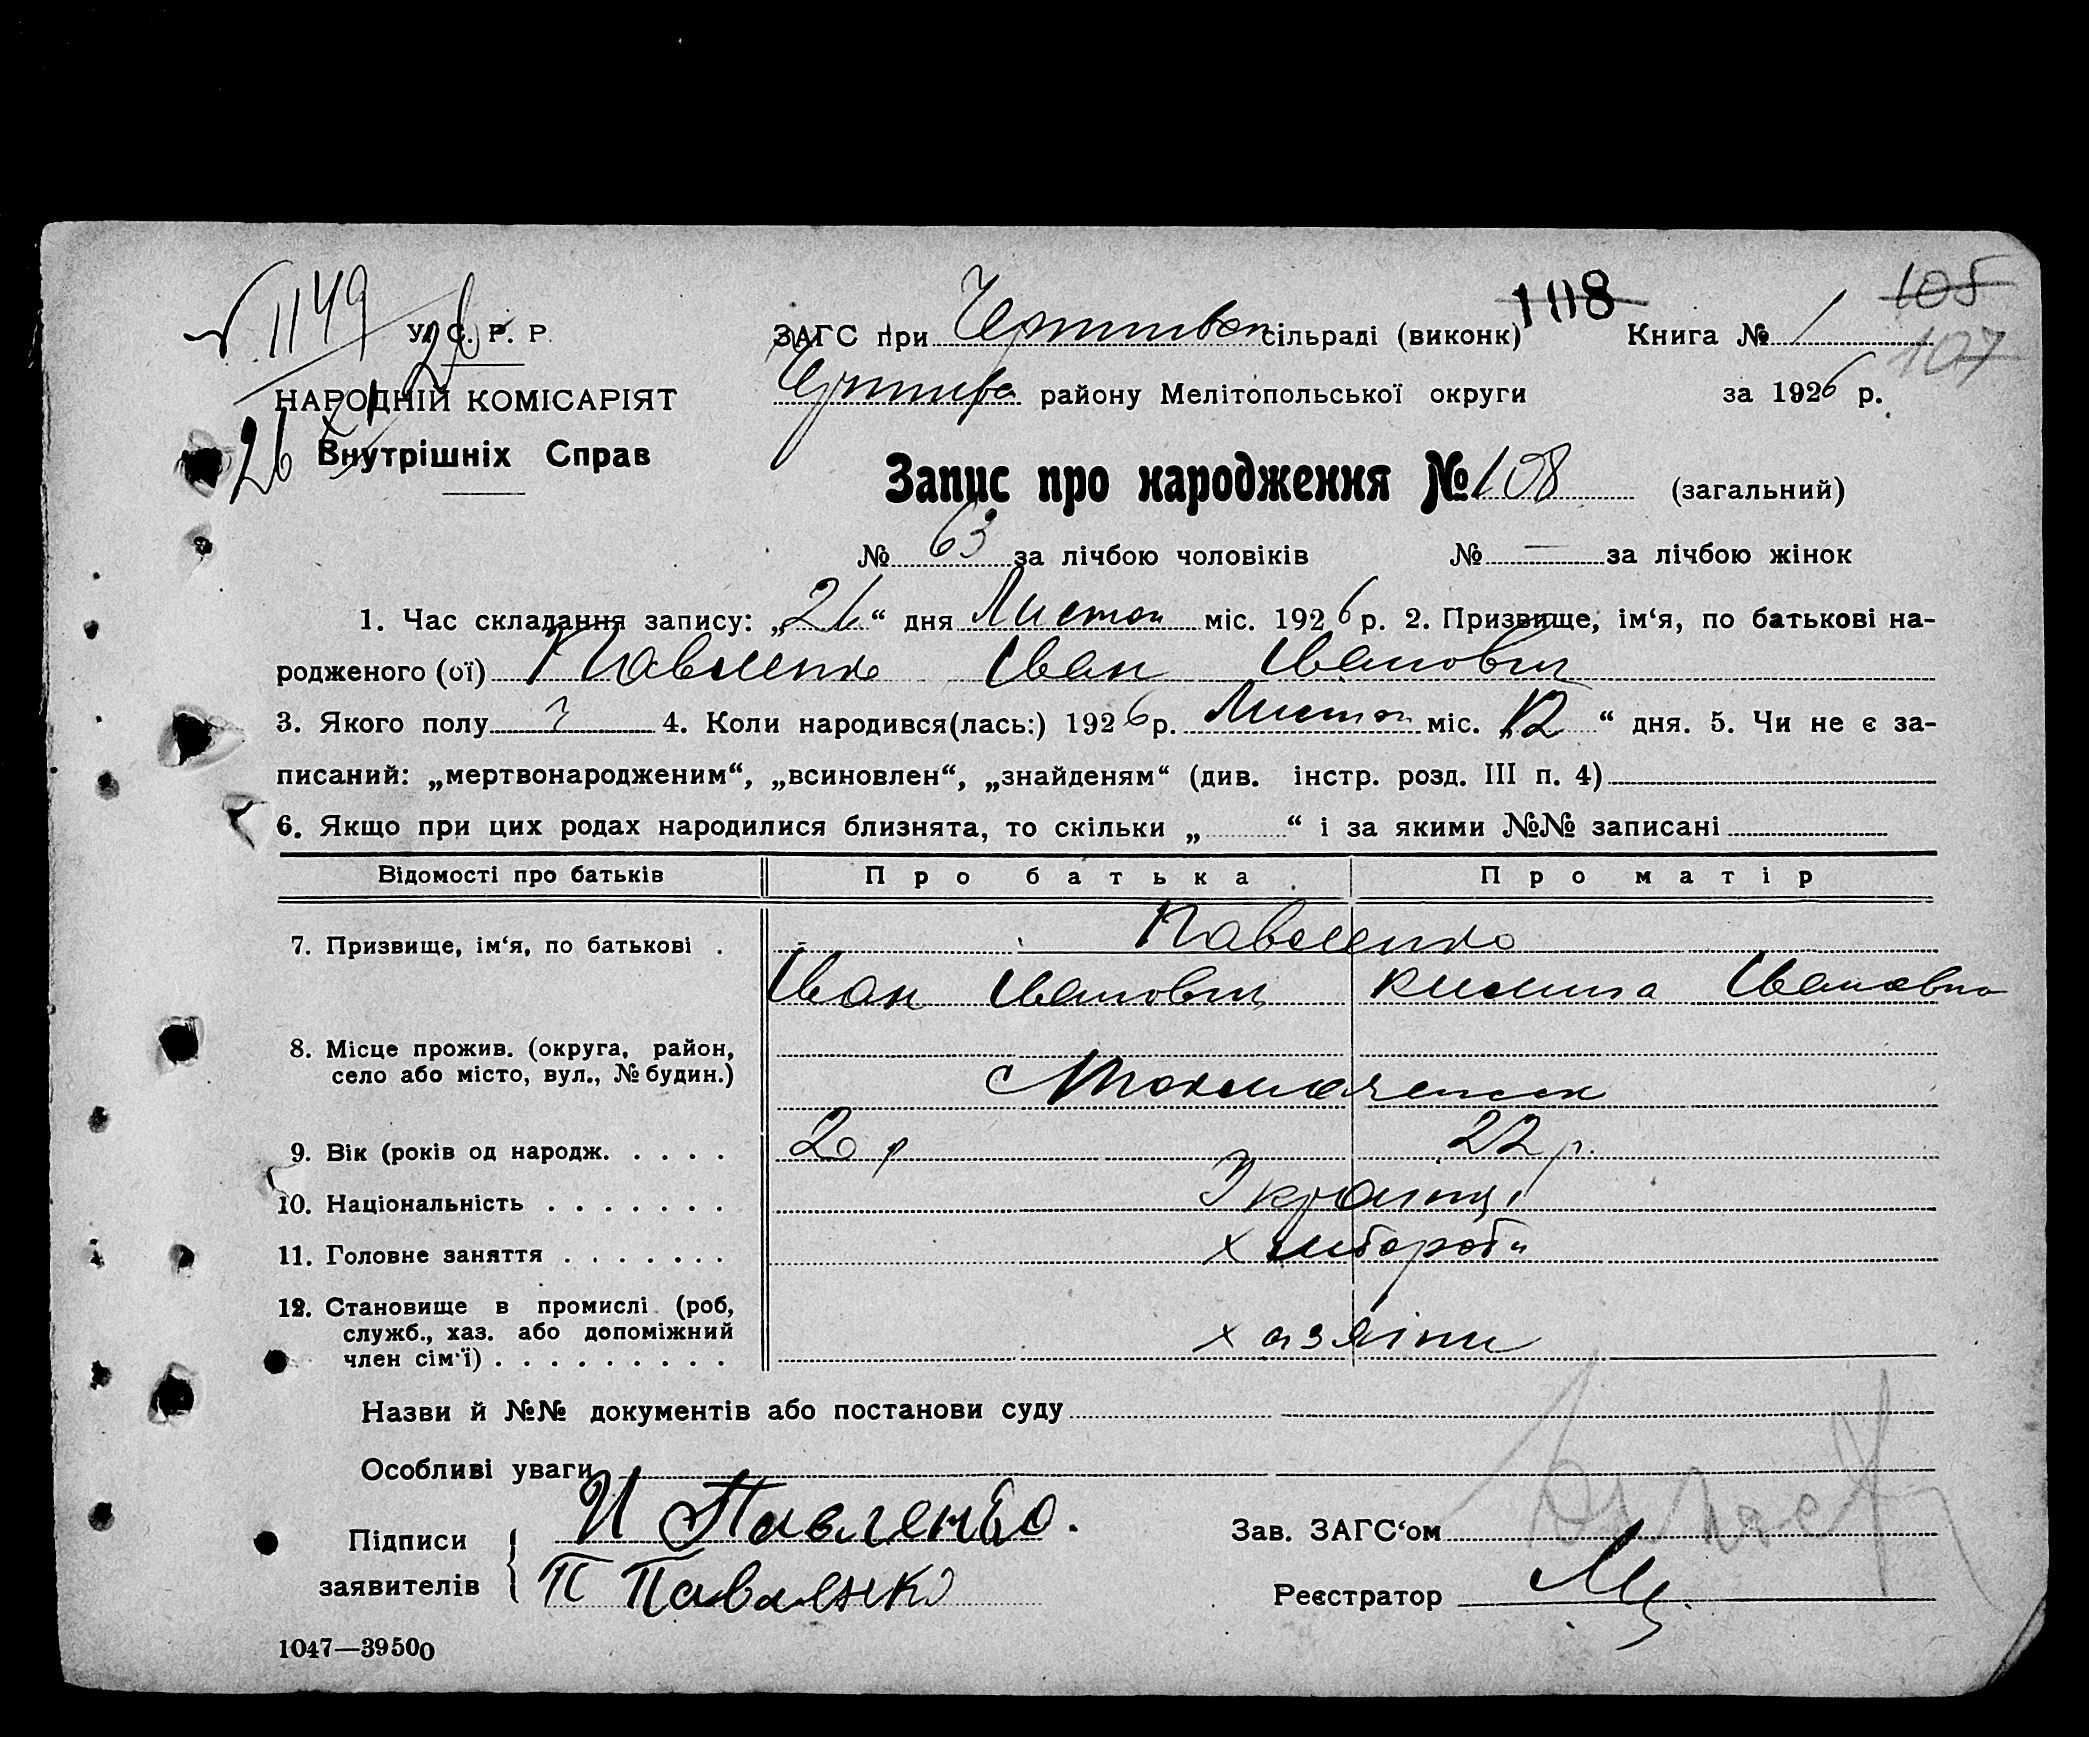 1149
26
У. С. Р. Р.
НАРОДНІЙ КОМІСАРІЯТ
Внутрішніх Справ
26
ЗАГС при сільраді (виконк)
108
Книга № 1
105
107
району Мелітопольської округи за 1926 р.
Запис про народження № 108 (загальний)
№ 63 за лічбою чоловіків № — за лічбою жінок
1. Час складання запису: „26“ дня Листоп міс. 1926 р. 2. Призвище, ім‘я, по батькові на-
родженого (ої) Павленко Іван Іванович
3. Якого полу ч 4. Коли народився(лась:) 1926 р. Листоп міс. „12“ дня. 5. Чи не є за-
писаний: „мертвонародженим“, „всиновлен“, „знайденям“ (див. інстр. розд. III п. 4)
6. Якщо при цих родах народилися близнята, то скільки „ “ і за якими №№ записані
Відомості про батьків Про батька Про матір
7. Призвище, ім‘я, по батькові . Павленко
Іван Іванович Килина Івановна
8. Місце прожив. (округа, район,
село або місто, вул., № будин.)
9. Вік (років од народж. . . . . 20 р 22 р.
10. Національність . . . . . . . Українці
11. Головне заняття . . . . . . . хлібороби
12. Становище в промислі (роб,
служб., хаз. або допоміжний
член сім‘ї) . . . . . . . . . хазяїни
Назви й №№ документів або постанови суду
Особливі уваги
Підписи И Павленко.
заявителів П Павленко
Зав. ЗАГС‘ом
Реєстратор
1047—39500